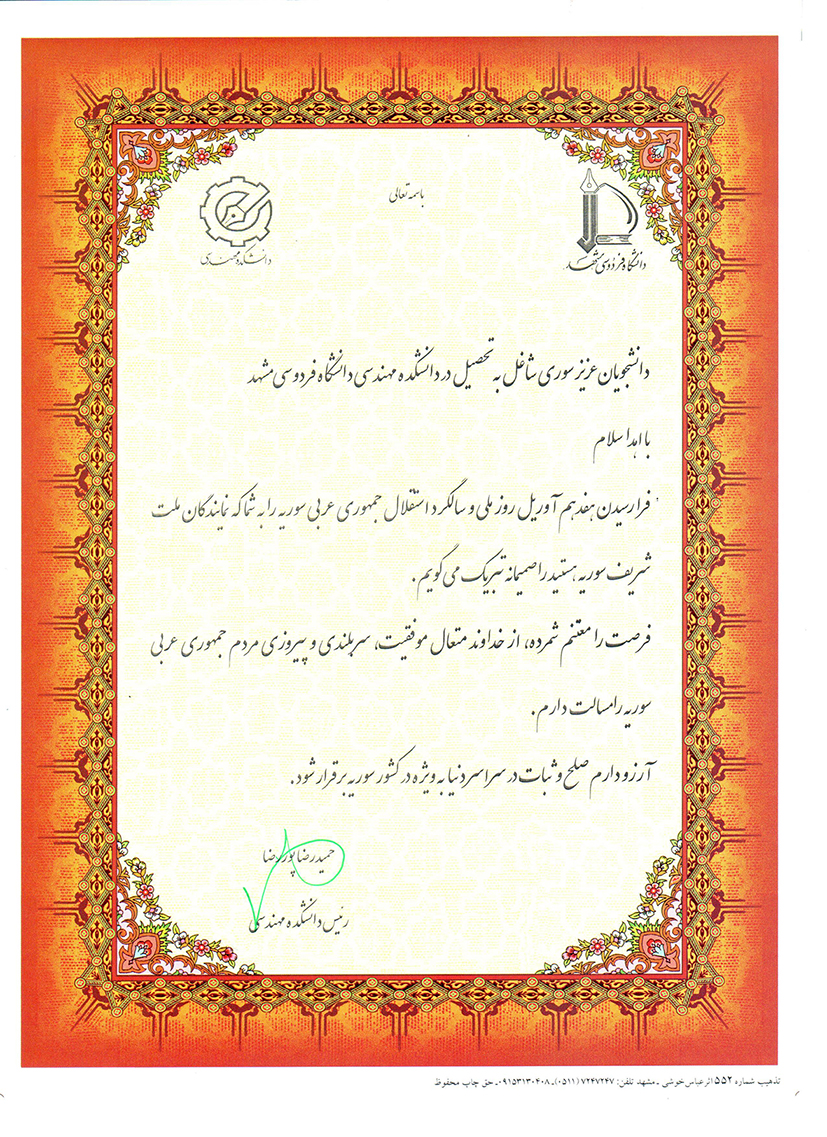 باسمه تعالی
دانشگاه فردوسی مشهد
دانشکده مهندسی
دانشجویان عزیز سوری شاغل به تحصیل در دانشکده مهندسی دانشگاه فردوسی مشهد
با اهدا سلام
فرارسیدن هفدهم آوریل روز ملی و سالگرد استقلال جمهوری عربی سوریه را به شما که نمایندگان ملت
شریف سوریه هستید را صمیمانه تبریک می گویم.
فرصت را مغتنم شمرده، از خداوند متعال موفقیت، سربلندی و پیروزی مردم جمهوری عربی
سوریه را مسالت دارم.
آرزو دارم صلح و ثبات در سراسر دنیا به ویژه در کشور سوریه برقرار شود.
حمیدرضا پوررضا
رئیس دانشکده مهندسی
تذهیب شماره ۵۵۲ اثر عباس خوشی - مشهد تلفن: ۷۲۴۷۲۴۷ (۰۵۱۱)-۰۹۱۵۳۱۳۰۴۰۸ حق چاپ محفوظ